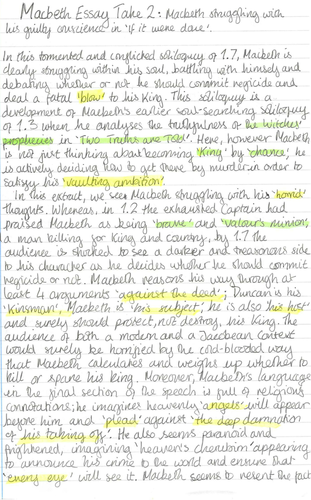 Macbeth Essay Take 2: Macbeth struggling with
his guilty conscience in 'if it were done'.
In this tormented and conflicted soliloquy of 1.7, Macbeth is
clearly struggling within his soul, battling with himself and
debating whether or not he should commit regicide and
deal a fatal 'blow' to his King. This soliloquy is a
development of Macbeth's earlier soul-searching soliloquy
of 1.3 when he analyses the truthfulness of the witches'
prophecies in 'Two Truths are Told'. Here, however Macbeth
is not just thinking about becoming 'King' by 'chance', he
is actively deciding how to get there by murder in order to
satisfy his 'vaulting ambition'.
In this extract, we see Macbeth struggling with his 'horrid'
thoughts. Whereas, in 1.2 the exhausted Captain had
praised Macbeth as being 'brave' and 'valour's minion',
a man killing for King and country, by 1.7 the
audience is shocked to see a darker and treasonous side
to his character as he decides whether he should commit
regicide or not. Macbeth reasons his way through at
least 4 arguments 'against the deed'; Duncan is his
'Kinsman', Macbeth is 'his subject', he is also 'his host'
and surely should protect, not destroy, his King. The
audience of both a modern and a Jacobean Context
would surely be horrified by the cold-blooded way
that Macbeth calculates and weighs up whether to
kill or spare his King. Moreover, Macbeth's language
in the final section of the speech is full of religious
connotations; he imagines heavenly 'angels' will appear
before him and 'plead' against 'the deep damnation
of his taking off'. He also seems paranoid and
frightened, imagining 'heaven's cherubim' appearing
to announce his crime to the world and ensure that
'every eye' will see it. Macbeth seems to resent the fact